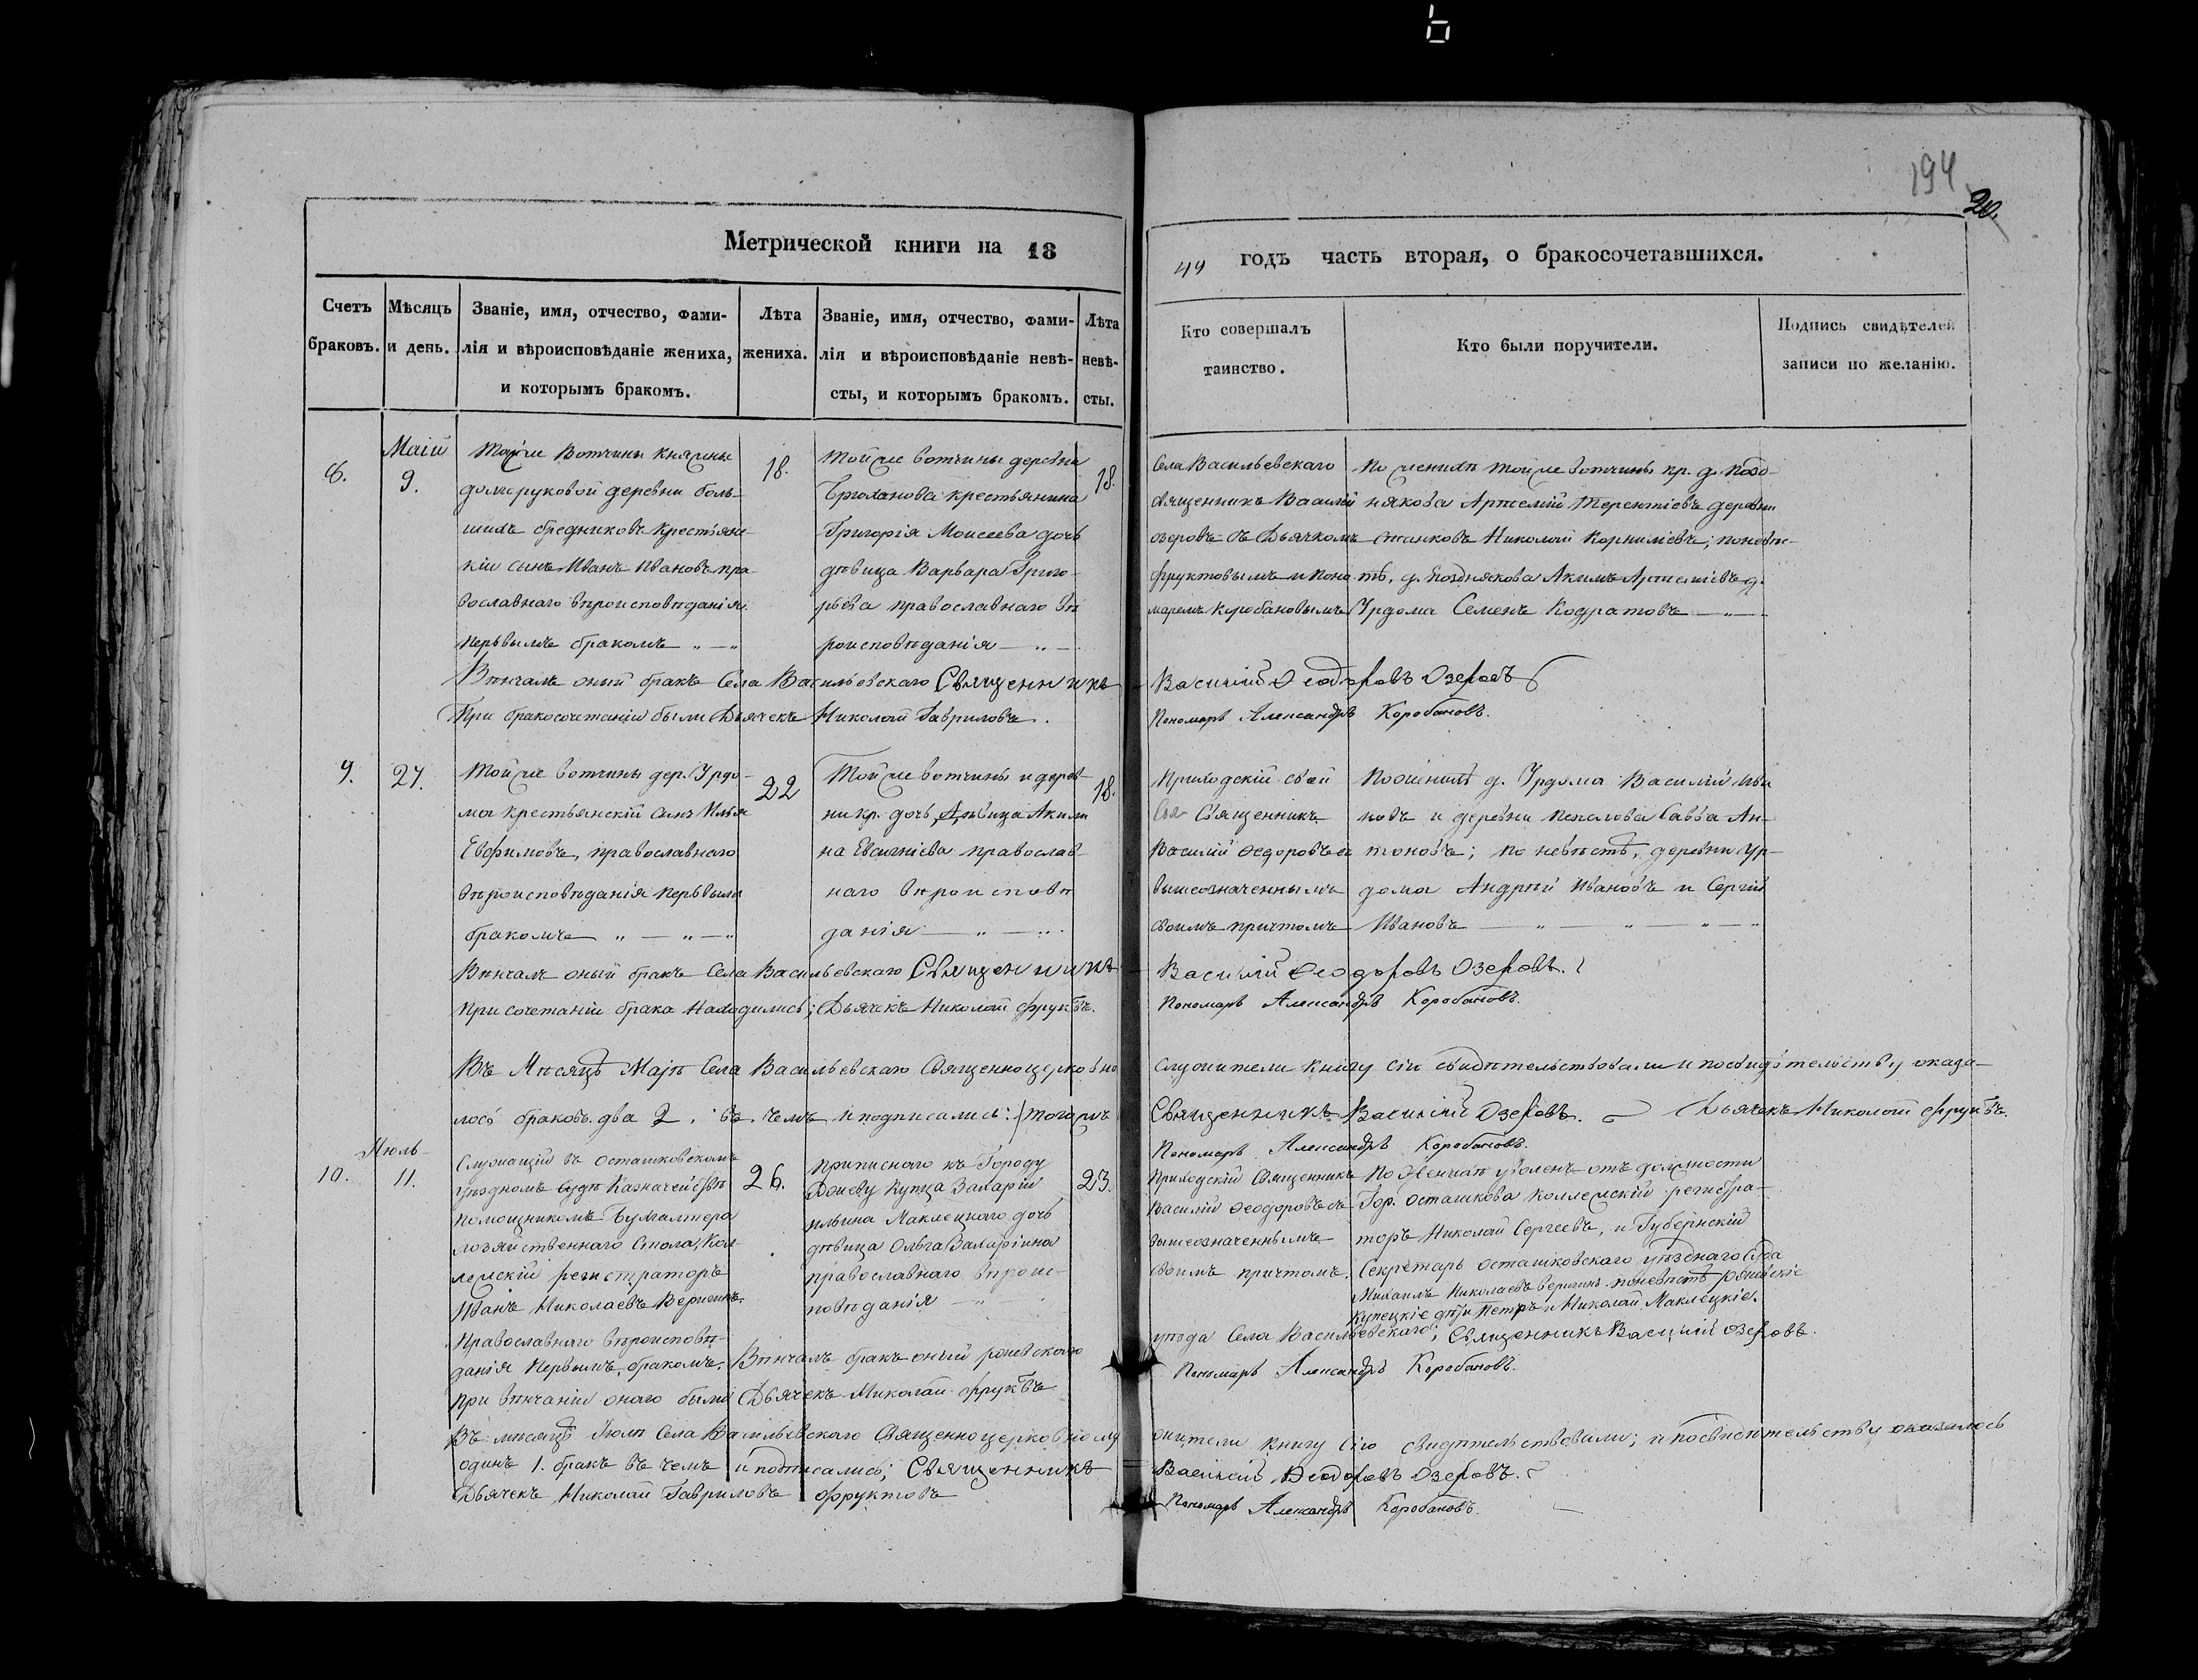 194
20.
Метрической книги на 18
49 годъ часть вторая, о бракосочетавшихся.
Счетъ браковъ.
Мѣсяцъ и день.
Званіе, имя, отчество, фами-
лія и вѣроисповѣданіе жениха,
и которымъ бракомъ.
Лѣта
жениха.
Званіе, имя, отчество, фами-
лія и вѣроисповѣданіе невѣ-
сты, и которымъ бракомъ.
Лѣта
невѣ-
сты.
Кто совершалъ
таинство.
Кто были поручители.
Подпись свидѣтелей
записи по желанію.
8.
Маій
9.
Тойже Вотчины Княжны
долгоруковой деревни боль-
шихъ бредниковъ крестьянс-
кій сынъ Иванъ Ивановъ пра-
вославнаго вѣроисповѣданія
первымъ бракомъ
18.
Тойже вотчины деревни
крестьянина
Григорія Моисеева дочь
дѣвица Варвара Григо-
рьева православнаго вѣ
роисповѣданія
18.
Села Васильевскаго
священникъ Василій
озеровъ съ Дьячкомъ
фруктовымъ и поно
маремъ Коробановымъ
По женихѣ тойже вотчины кр. д. Позд-
някова Артемій Терентіевъ деревни
Николай Корниліевъ; по невѣс-
тѣ, д. Позднякова Акимъ Артеміевъ д.
Урдома Семенъ Кодратовъ
Вѣнчалъ оный бракъ Села Васильевскаго Священникъ Василій Ѳеодоровъ Озеровъ
При бракосочетаніи были Дьячекъ Николай Гавриловъ.
Пономарь Александръ Коробановъ.
9.
27.
Тойже вотчины дер. Урдо-
ма крестьянскій сынъ Илья
Евфимовъ, православнаго
вѣроисповѣданія первымъ
бракомъ
22
Тойже вотчины и дерев-
ни кр. дочь, дѣвица Акили
на Евсигніева православ-
наго вѣроисповѣ
данія
18.
Приходскій свой
Священникъ
Василій Ѳедоровъ съ
вышеозначеннымъ
своимъ причтомъ
По женихѣ д. Урдома Василій Ива
новъ и деревни Савва Ан-
тоновъ; по невѣстѣ, деревни Ур-
дома Андрей Ивановъ и Сергій
Ивановъ
Вѣнчалъ оный бракъ Села Васильевскаго Священникъ Василій Ѳеодоровъ Озеровъ.
При сочетаніи брака Находились; Дьячекъ Николай Фруктовъ.
Пономарь Александръ Коробановъ
Въ Мѣсяцѣ Маіѣ Села Васильевскаго Священноцерковно служители книгу сію свидѣтельствовали и по свидѣтельству оказа-
лось браковъ два 2. въ чемъ и подписались: тогожъ Священникъ Василій Озеровъ. Дьячекъ Николай Фруктовъ.
Пономарь Александръ Коробановъ.
10.
Июль
11.
Служащій въ Осташковскомъ
уѣздномъ Казначействѣ
помощникомъ Бухгалтера
хозяйственнаго Стола, Кол-
лежскій регистраторъ
Иванъ Николаевъ Веригинъ.
Православнаго вѣроисповѣ-
данія Первымъ бракомъ.
26.
приписнаго къ Городу
Ржеву Купца Захарія
ильина Маклецкаго дочь
дѣвица Ольга Захаріина
православнаго вѣроис-
повѣданія
23.
Приходскій Священникъ
Василій Ѳеодоровъ съ
вышеозначеннымъ
своимъ причтомъ.
По Женихѣ уволенъ отъ должности
Гор. Осташкова Коллежскій регистра-
торъ Николай Сергеевъ, и Губернскій
Секретарь Осташковскаго уѣзднаго Суда
Михаилъ Николаевъ Веригинъ по невѣстѣ Ржевскіе
Купецкіе дѣти Петръ и Николай Маклецкіе.
Вѣнчалъ бракъ оный ржевскаго уѣзда Села Васильевскаго; Священникъ Василій Озеровъ.
При вѣнчаніи онаго были Дьячекъ Николай Фруктовъ
Пономарь Александръ Коробановъ.
Въ мѣсяцѣ Іюлѣ Села Васильевскаго Священноцерковнослу жители книгу сію свидѣтельствовали; и по свидѣтельству оказалось
одинъ 1. бракъ въ чемъ и подписались; Священникъ Василій Ѳеодоровъ Озеровъ.
Дьячекъ Николай Гавриловъ Фруктовъ
Пономарь Александръ Коробановъ.